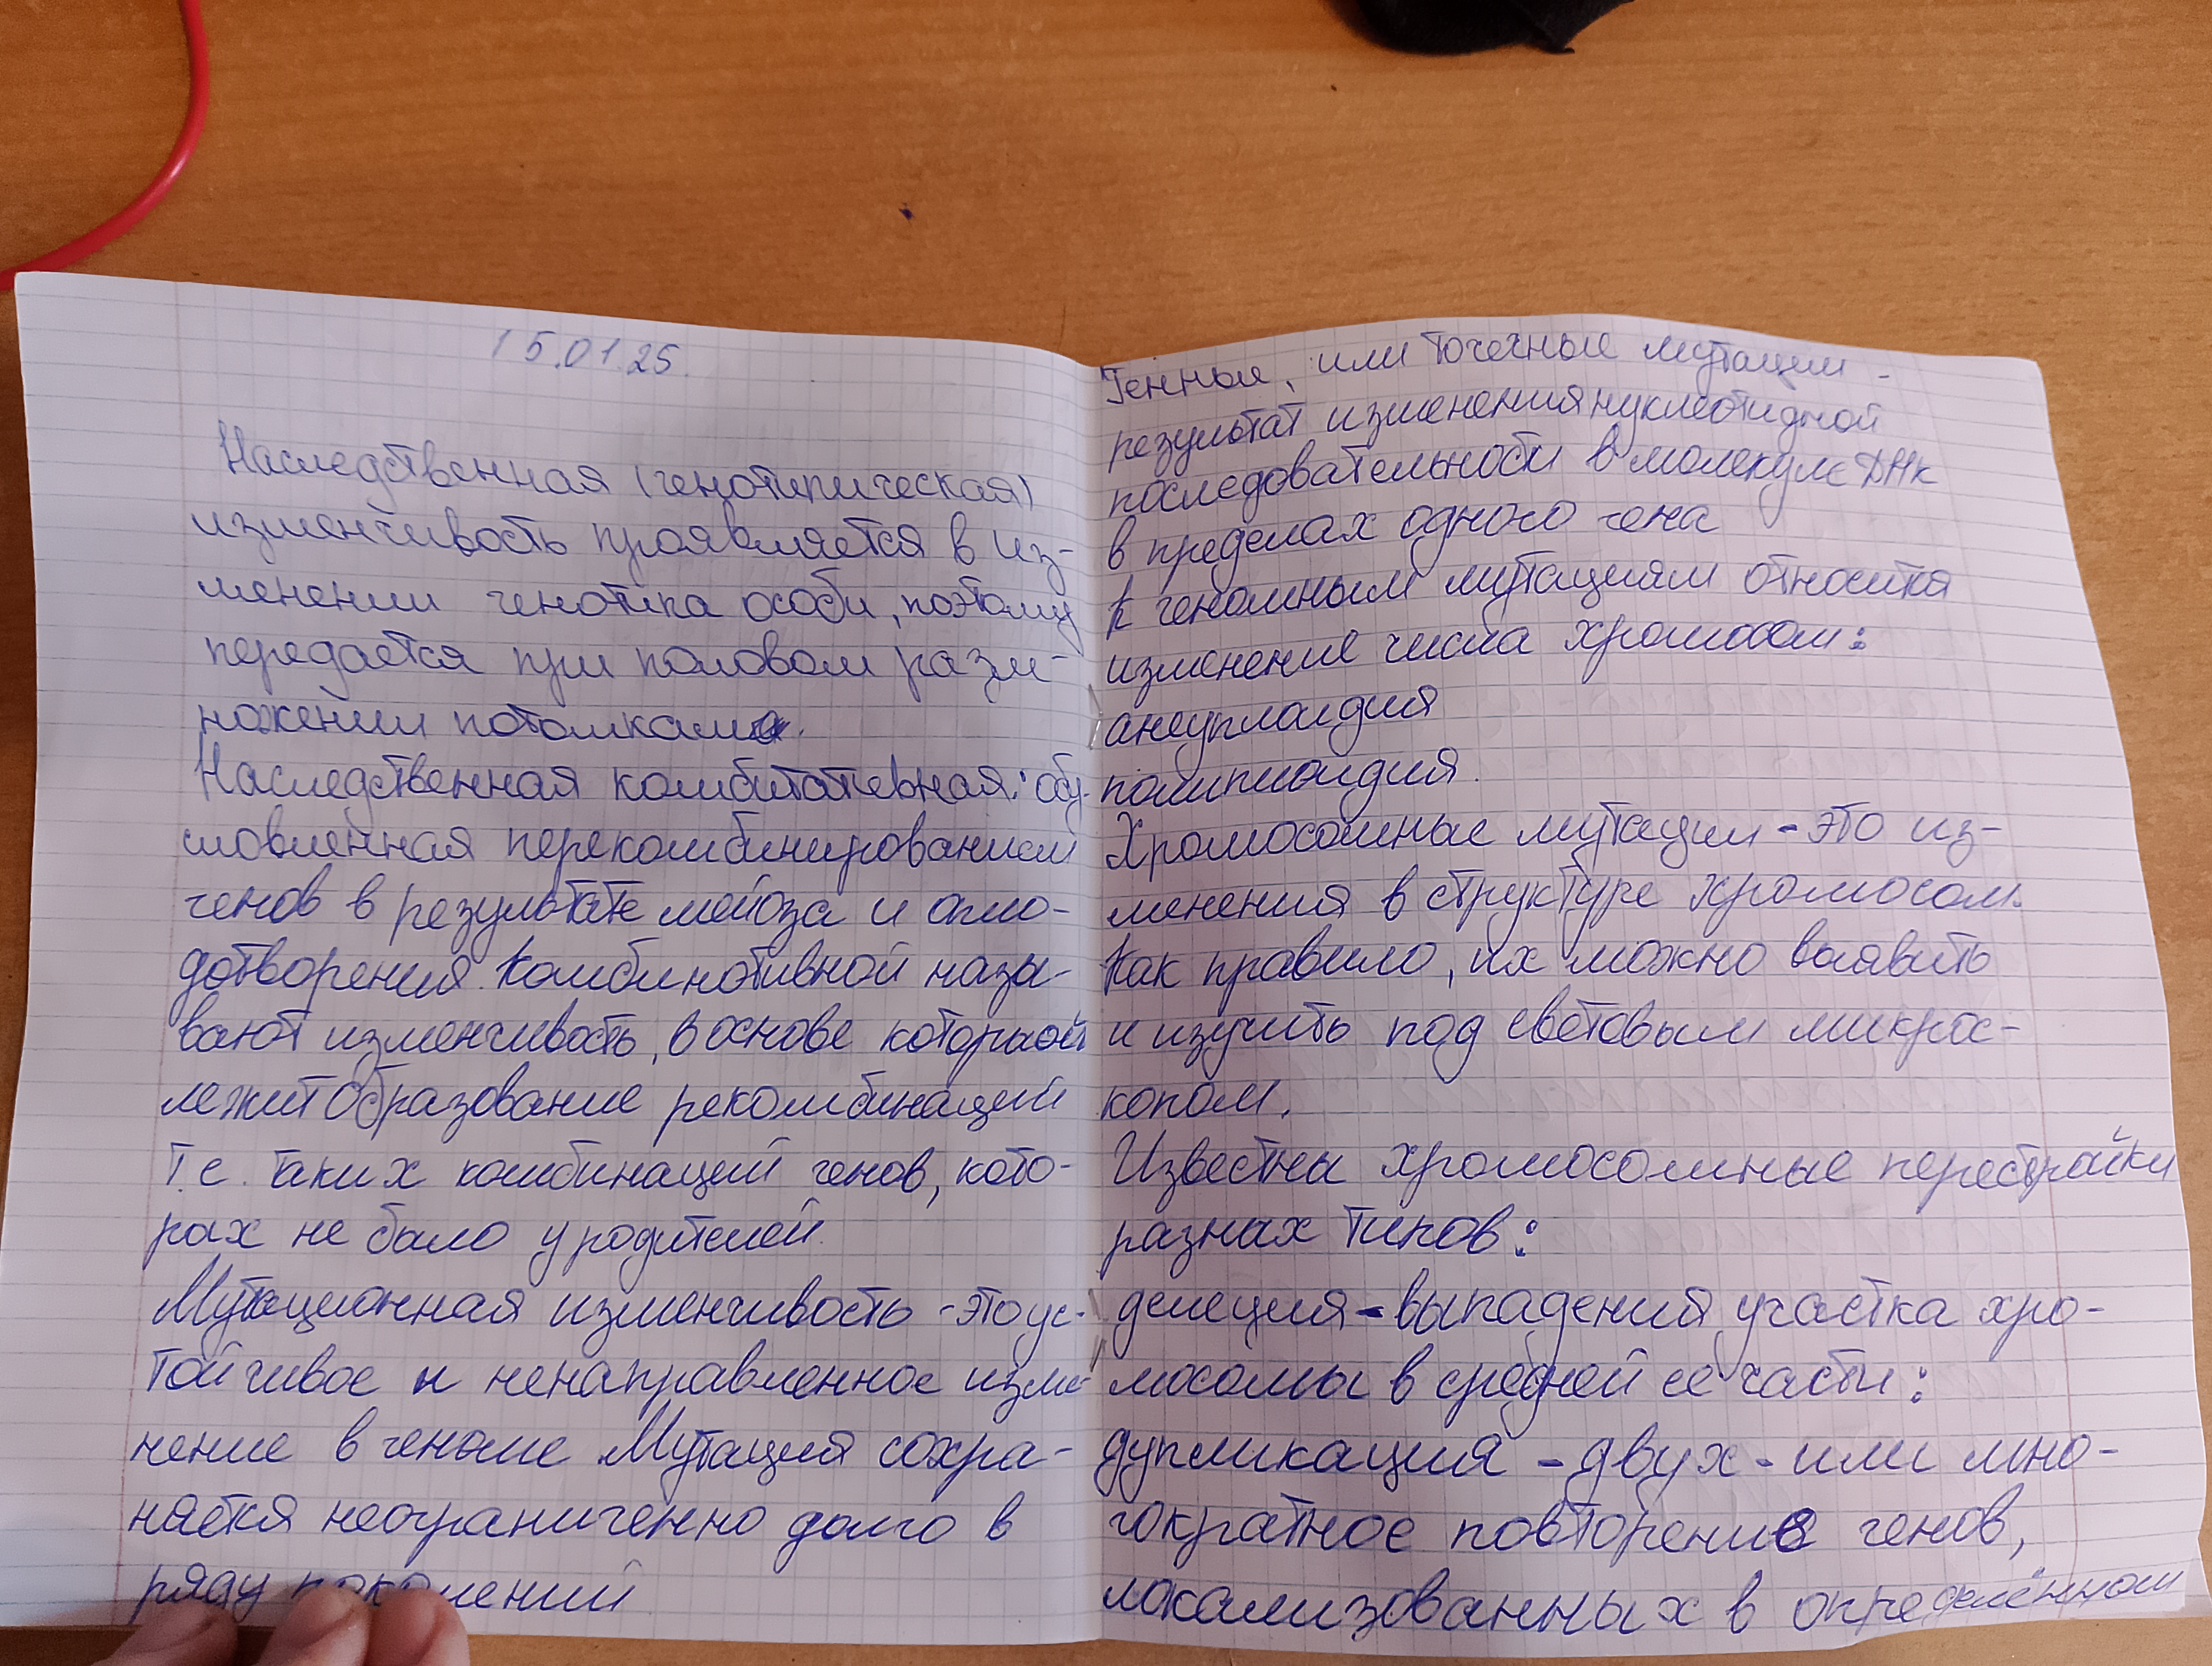 15.01.25.
Наследственная (генотипическая)
изменчивость проявляется в из-
менении генотипа особи, поэтому
передается при половом разм-
ножении потомкам.
Наследственная комбитативная: обу-
словленная перекомбинированием
генов в результате мейоза и опло-
дотворения. Комбинотивной назы-
вают изменчивость, в основе которой
лежит образование рекомбинаций
т.е. таких комбинаций генов, кото-
рах не было у родителей.
Мутационная изменчивость - это ус-
тойчивое и ненаправленное изме-
нение в геноме Мутация сохра-
няется неограниченно долго в
ряду поколений
Генные, или точечные мутации -
результат изменения нуклеотидной
последовательности в молекуле ДНК
в пределах одного гена
к геномным мутациям относится
изменение числа хромосом:
анеуплоидия
полиплоидия.
Хромосомные мутации - это из-
менения в структуре хромосом.
Как правило, их можно выявить
и изучить под световым микрос-
копом.
Известны хромосомные перестройки
разнах типов:
делеция - выпадений участка хро-
мосомы в средней ее части:
дупликация - двух - или мно-
гократное повторение генов,
локализованных в определённом